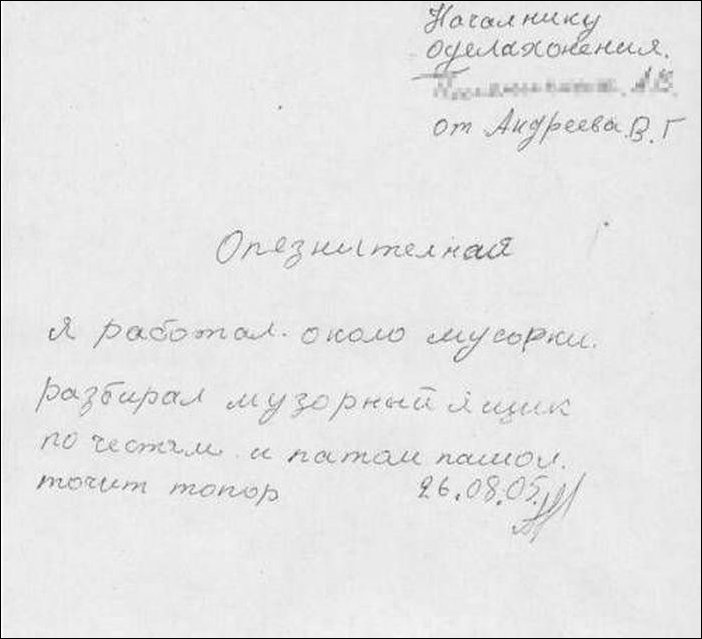 Началнику
оделахонения.
от Андреева.В.Г
Опезнителная
я работал. около мусорки.
разбирал музорный ящик
по честям и патом пашол.
точит топор 26.08.05.